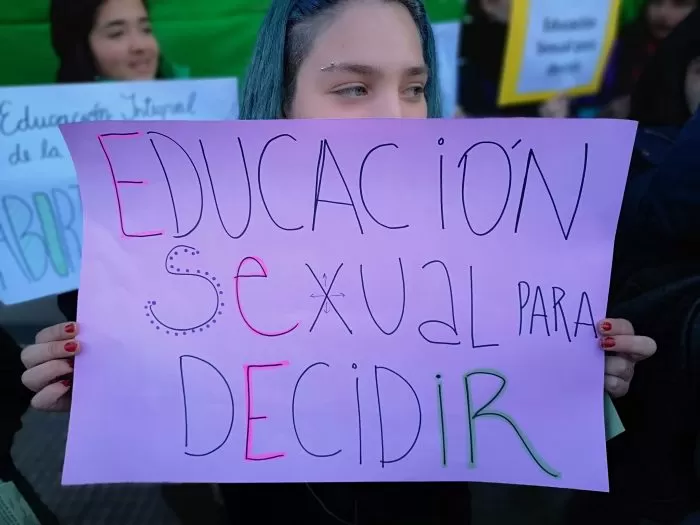 EDUCACIÓN
SeXUaL PARA
DECIDiR
Educación Integral
de la
ABIRT
Educación
Sexual para
decidir